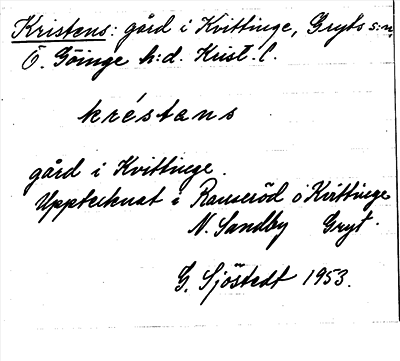 Kristens: gård i Kvittinge, Gryts s:n,
Ö. Göinge h:d. Krist. l.
kréstans
gård i Kvittinge.
Upptecknat i Ramseröd o Kvittinge
N. Sandby Gryt.
G. Sjöstedt 1953.